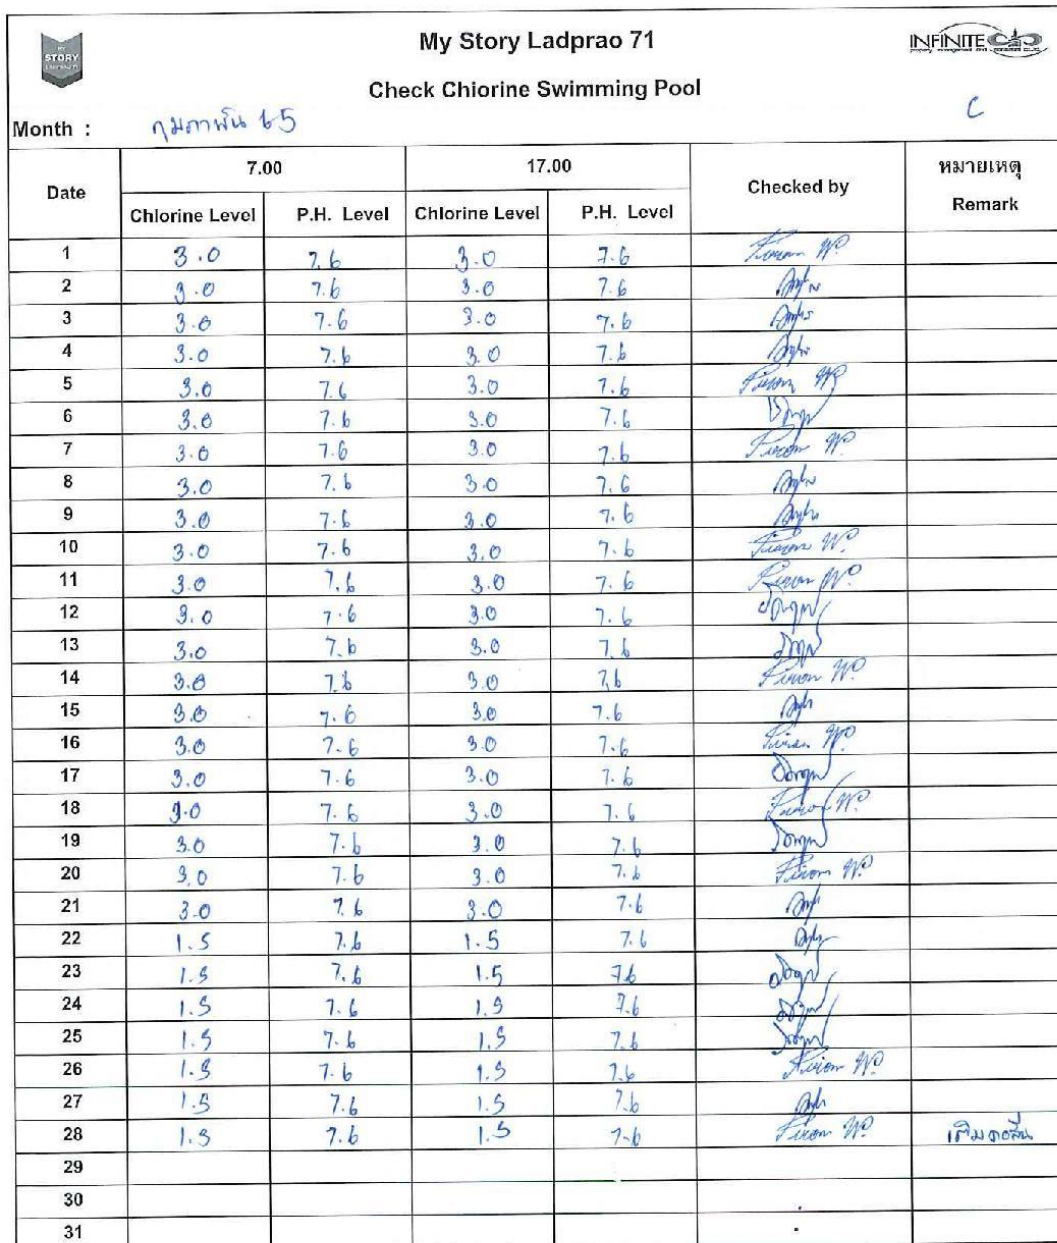 MY
STORY
LADPRAO 71
My Story Ladprao 71
INFINITE
Check Chiorine Swimming Pool
C
Month : กุมภาพัน 65
Date 7.00 17.00 Checked by หมายเหตุ
Chlorine Level P.H. Level Chlorine Level P.H. Level Remark
1 3.0 7.6 3.0 7.6
2 3.0 7.6 3.0 7.6
3 3.0 7.6 3.0 7.6
4 3.0 7.6 3.0 7.6
5 3.0 7.6 3.0 7.6
6 3.0 7.6 3.0 7.6
7 3.0 7.6 3.0 7.6
8 3.0 7.6 3.0 7.6
9 3.0 7.6 3.0 7.6
10 3.0 7.6 3.0 7.6
11 3.0 7.6 3.0 7.6
12 3.0 7.6 3.0 7.6
13 3.0 7.6 3.0 7.6
14 3.0 7.6 3.0 7.6
15 3.0 7.6 3.0 7.6
16 3.0 7.6 3.0 7.6
17 3.0 7.6 3.0 7.6
18 3.0 7.6 3.0 7.6
19 3.0 7.6 3.0 7.6
20 3.0 7.6 3.0 7.6
21 3.0 7.6 3.0 7.6
22 1.5 7.6 1.5 7.6
23 1.5 7.6 1.5 7.6
24 1.5 7.6 1.5 7.6
25 1.5 7.6 1.5 7.6
26 1.5 7.6 1.5 7.6
27 1.5 7.6 1.5 7.6
28 1.5 7.6 1.5 7.6 เติมคอลีน
29
30
31